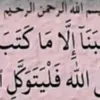 بسم الله الرحمن الرحيم
يبَنَا إِلَّا مَا كَتَبَ
ى اللَّهِ فَلْيَتَوَكَّلِ